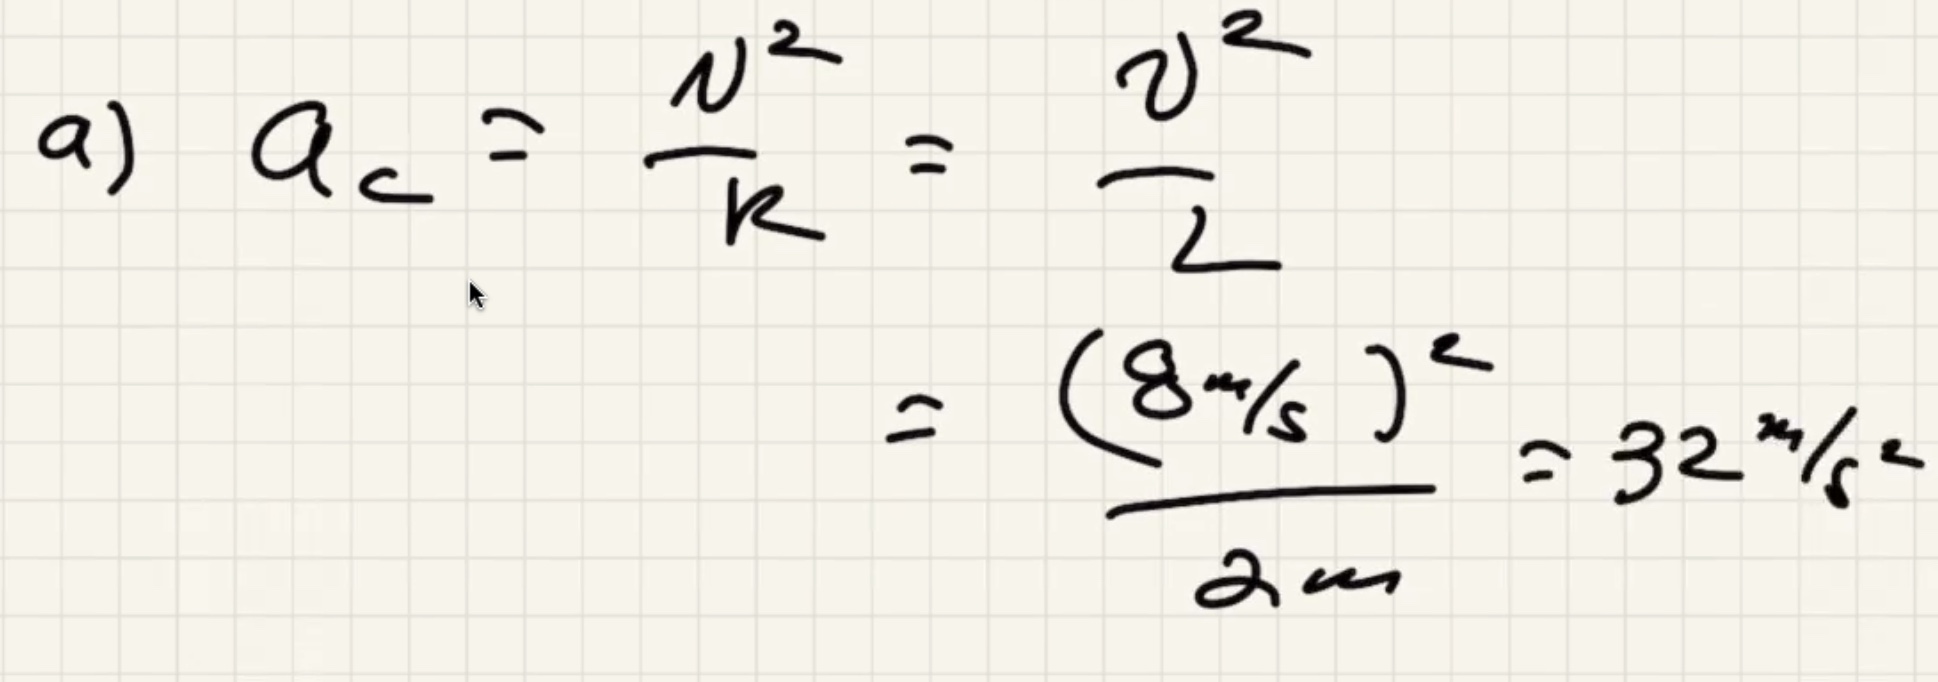 a) a_c = v²/R = v²/L
= (8 m/s)²/2m = 32 m/s²